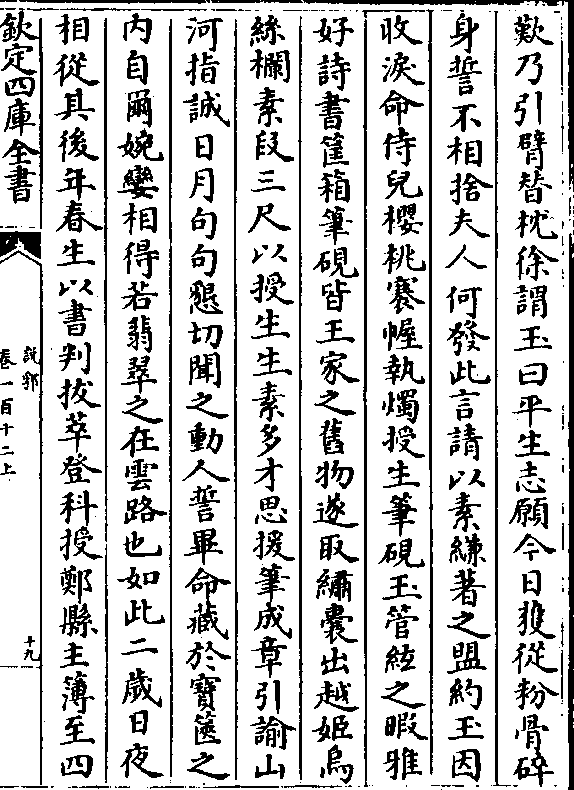 歎乃引臂替枕徐謂玉曰平生志願今日獲從粉骨碎
身誓不相捨夫人何發此言請以素縑著之盟約玉因
收淚命侍兒櫻桃褰幄執燭授生筆硯玉管絃之暇雅
好詩書筐箱筆硯皆王家之舊物遂取繡囊出越姬烏
絲欄素段三尺以授生生素多才思援筆成章引諭山
河指誠日月句句懇切聞之動人誓畢命藏於寶篋之
內自爾婉孌相得若翡翠之在雲路也如此二歲日夜
相從其後年春生以書判拔萃登科授鄭縣主簿至四
欽定四庫全書
說郛
卷一百十二上
十九